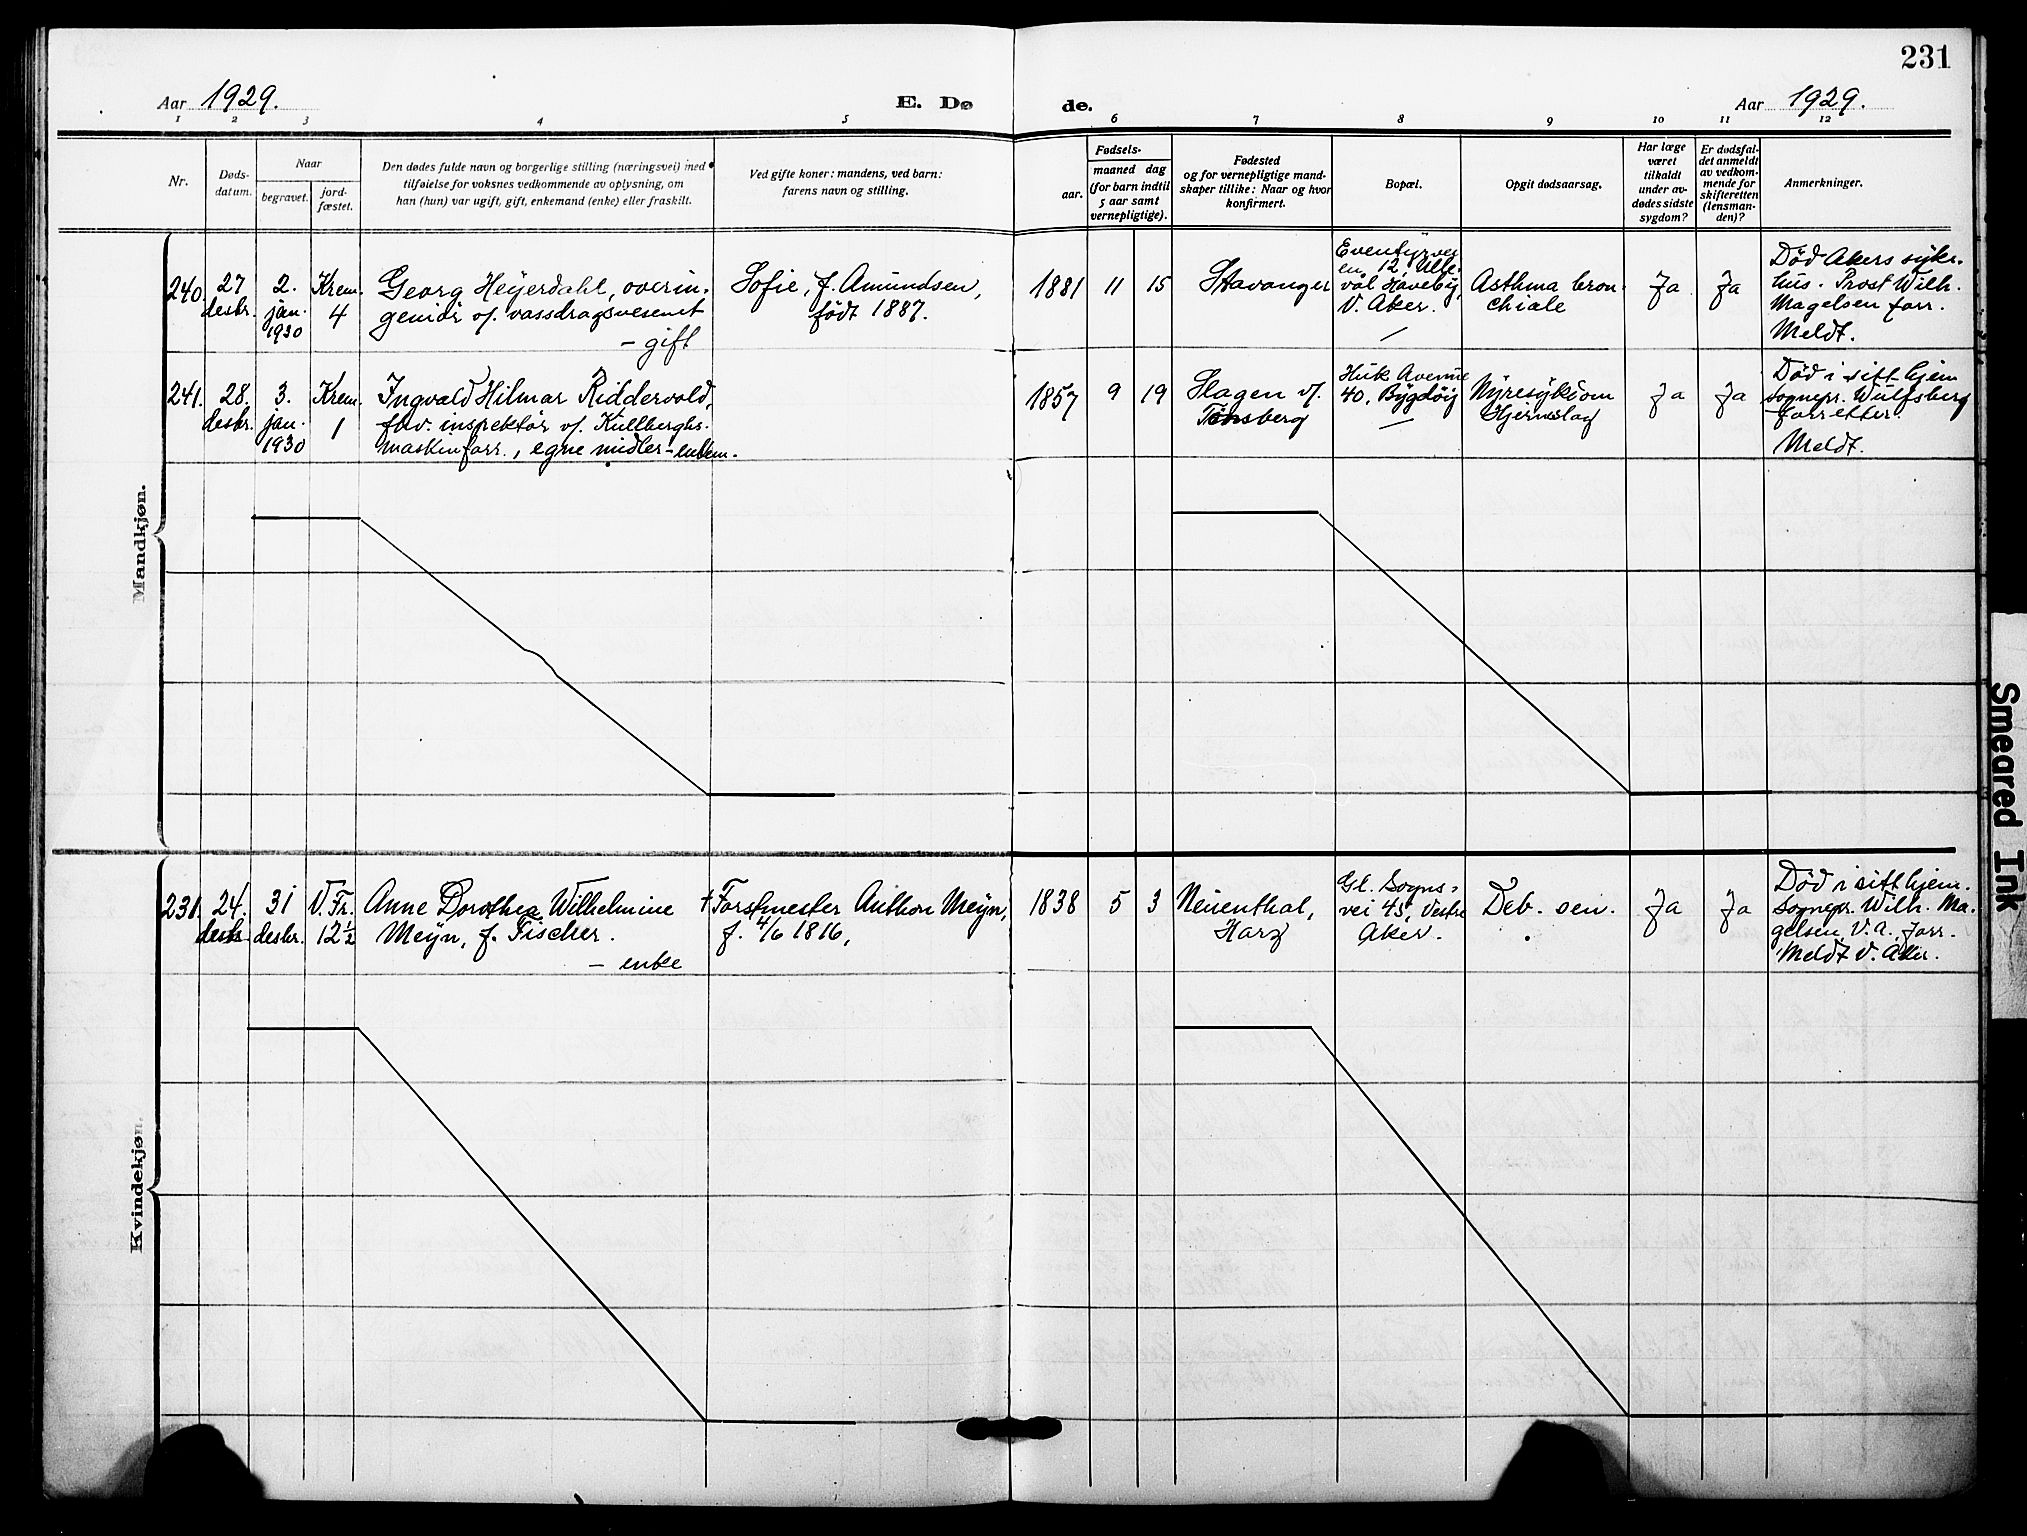 231
Aar 1929.
E. Dø
de.
Aar 1929.
1 2 3 4 5 6 7 8 9 10 11 12
Nr.
Døds-
datum.
Naar
begravet.
jord-
fæstet.
Den dødes fulde navn og borgerlige stilling (næringsvei) med
tilføielse for voksnes vedkommende av oplysning, om
han (hun) var ugift, gift, enkemand (enke) eller fraskilt.
Ved gifte koner: mandens, ved barn:
farens navn og stilling.
Fødsels-
aar.
maaned dag
(for barn indtil
5 aar samt
vernepligtige).
Fødested
og for vernepligtige mand-
skaper tillike: Naar og hvor
konfirmert.
Bopæl.
Opgit dødsaarsag.
Har læge
været
tilkaldt
under av-
dødes sidste
sygdom?
Er dødsfal-
det anmeldt
av vedkom-
mende for
skifteretten
(lensman-
den)?
Anmerkninger.
Mandkjøn.
240.
27
desbr.
2.
jan.
1930
Krem.
4
Georg Heyerdahl, overin-
geniør v. vassdragsvesenet
- gift
Sofie, f. Amundsen,
født 1887.
1881 11 15
Stavanger
Eventyrvei
en 12, Ulle-
vål Haveby,
V. Aker.
Asthma bron-
chiale
Ja
Ja
Død Akers syke-
hus. Prost Wilh.
Magelsen forr.
Meldt.
241.
28.
desbr.
3.
jan.
1930
Krem.
1
Ingvald Hilmar Riddervold,
fhv. inspektør v. Kullberghs
maskinforr., egne midler - enkem.
1857 9 19
Slagen v.
Tønsberg
Huk Avenue
40, Bygdøy
Nyresykdom
Hjerneslag
Ja
Ja
Død i sitt hjem
sognepr. Wulfsberg
forretter.
Meldt.
Kvindekjøn.
231.
24.
desbr.
31
desbr.
V. Fr.
12 1/2
Anne Dorothea Wilhelmine
Meyn, f. Fischer.
- enke
† Forstmester Anthon Meyn,
f. 4/6 1816,
1838 5 3
Neuenthal,
Harz
Gl. Sogns-
vei 45, Vestre
Aker.
Deb. sen.
Ja
Ja
Død i sitt hjem.
Sognepr. Wilh. Ma-
gelsen, V. A. forr.
Meldt V. Aker.
Smeared Ink